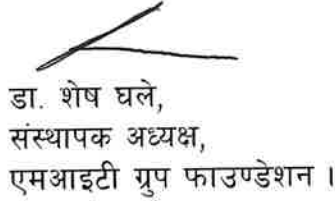 डा. शेष घले,
संस्थापक अध्यक्ष,
एमआइटी ग्रुप फाउण्डेशन ।